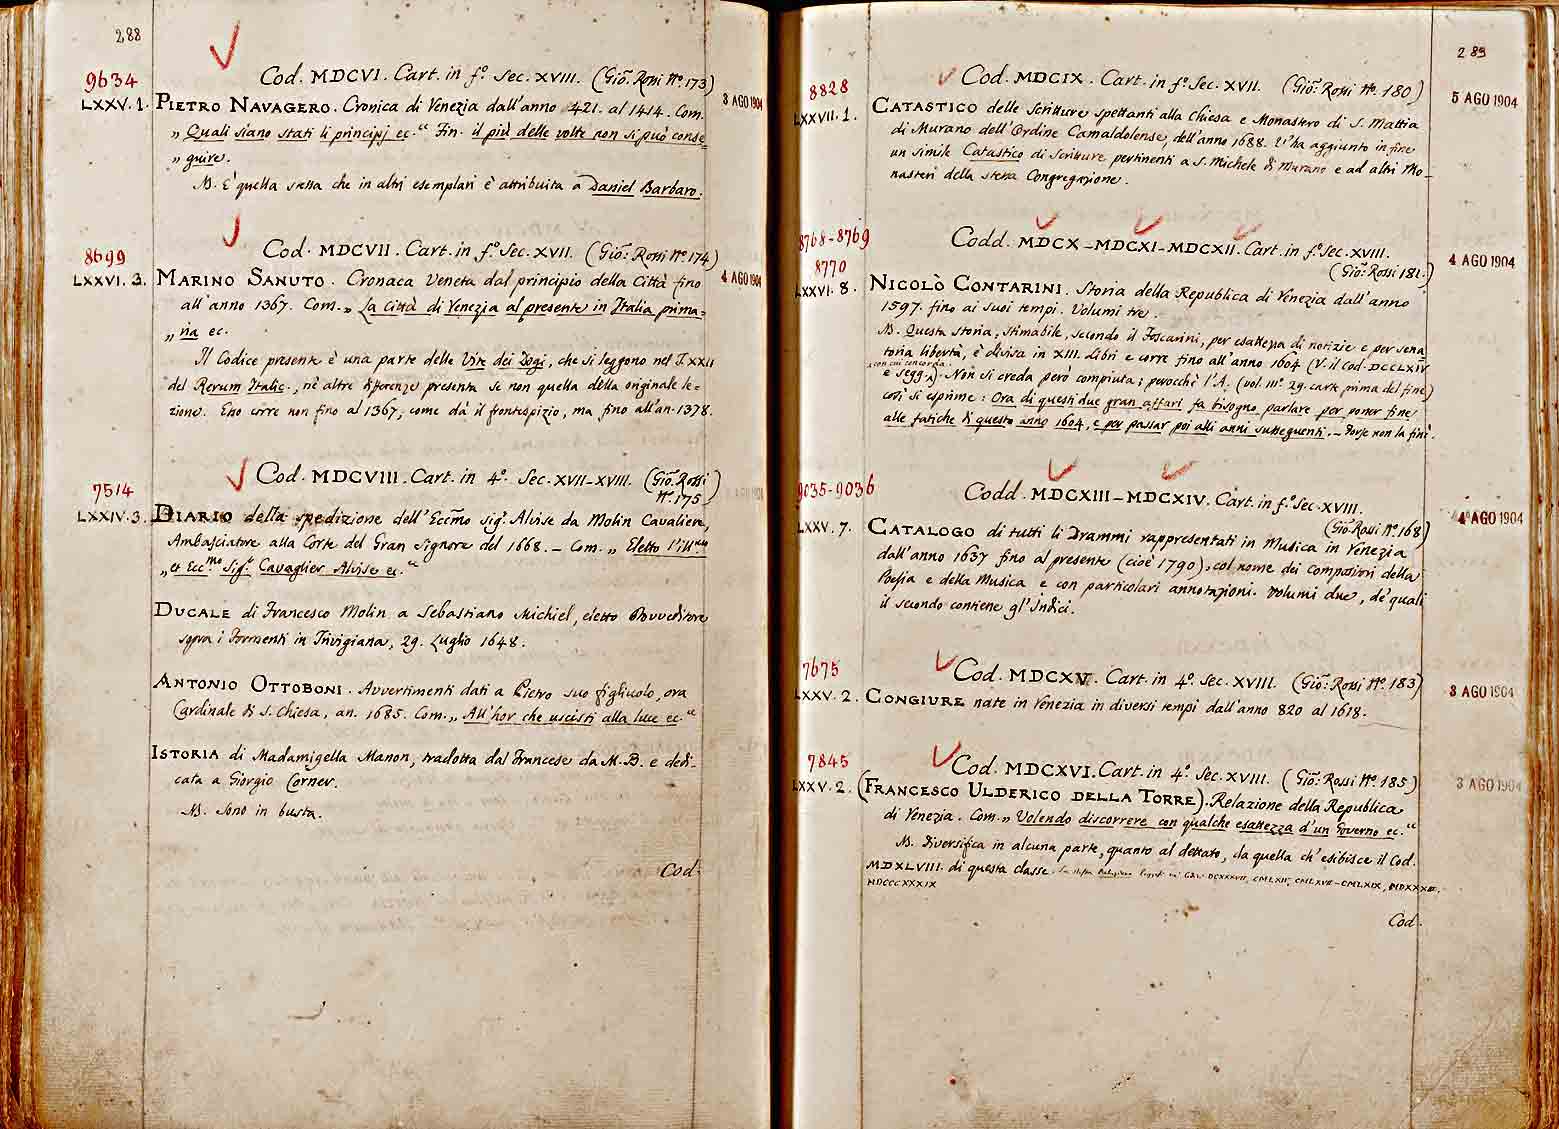 288
9634
Cod. MDCVI. Cart. in fº. Sec. XVIII. (Giõ. Rossi Nº. 173)
LXXV. 1. PIETRO NAVAGERO. Cronica di Venezia dall'anno 421. al 1414. Com. 3 AGO 1904
„ Quali siano stati li principj ec.“ Fin. il più delle volte non si può conse
„ guire.
N. E' quella stessa che in altri esemplari è attribuita a Daniel Barbaro.
8699
Cod. MDCVII. Cart. in fº. Sec. XVII. (Giõ. Rossi Nº. 174)
LXXVI. 3. MARINO SANUTO. Cronaca Veneta dal principio della Città fino 4 AGO 1904
all'anno 1367. Com. „ La città di Venezia al presente in Italia prima=
„ ria ec.
Il Codice presente è una parte delle Vite dei Dogi, che si leggono nel T. XXII
del Rerum Italic., nè altre differenze presenta se non quella della originale le=
zione. Esso corre non fino al 1367, come dà il frontespizio, ma fino all'an. 1378.
7514
Cod. MDCVIII. Cart. in 4º. Sec. XVII-XVIII. (Giõ. Rossi
Nº. 175)
LXXIV. 3. DIARIO della spedizione dell'Eccm̃o sigʳ. Alvise da Molin Cavaliere,
Ambasciatore alla Corte del Gran Signore del 1668. — Com. „ Eletto l'Illᵐᵒ
„ et Eccᵐᵒ Sigʳ. Cavaglier Alvise ec.“
DUCALE di Francesco Molin a Sebastiano Michiel, eletto Provveditore
sopra i Formenti in Trivigiana, 29. Luglio 1648.
ANTONIO OTTOBONI. Avvertimenti dati a Pietro suo figliuolo, ora
Cardinale di S. Chiesa, an. 1685. Com. „ All'hor che uscisti alla luce ec.“
ISTORIA di Madamigella Manon, tradotta dal Francese da M. B. e dedi-
cata a Giorgio Corner.
N. Sono in busta.
Cod.
289
8828
Cod. MDCIX. Cart. in fº. Sec. XVII. (Giõ. Rossi Nº. 180)
LXXVII. 1. CATASTICO delle Scritture spettanti alla Chiesa e Monastero di S. Mattia 5 AGO 1904
di Murano dell'Ordine Camaldolense, dell'anno 1688. V'ha aggiunto in fine
un simile Catastico di Scritture pertinenti a S. Michele di Murano e ad altri Mo-
nasteri della stessa Congregazione.
8768-8769
8770
Codd. MDCX-MDCXI-MDCXII. Cart. in fº. Sec. XVIII. 4 AGO 1904
(Giõ. Rossi 181.)
LXXVI. 8. NICOLÒ CONTARINI. Storia della Republica di Venezia dall'anno
1597. fino ai suoi tempi. Volumi tre.
N. Questa storia, stimabile, secondo il Foscarini, per esattezza di notizie e per sena
toria libertà, è divisa in XIII. Libri e corre fino all'anno 1604 (V. il Cod. DCCLXIV
con cui concorda
e segg.). Non si creda però compiuta; perocchè l'A. (vol. IIIº. 29. carte prima del fine)
così si esprime: Ora di questi due gran affari fa bisogno parlare per poner fine
alle fatiche di questo anno 1604, e per passar poi alli anni susseguenti. — Forse non la finì.
9035-9036
Codd. MDCXIII-MDCXIV. Cart. in fº. Sec. XVIII.
(Giõ. Rossi Nº. 168)
LXXV. 7. CATALOGO di tutti li Drammi rappresentati in Musica in Venezia 4 AGO 1904
dall'anno 1637 fino al presente (cioè 1790), col nome dei Compositori della
Poesia e della Musica e con particolari annotazioni. Volumi due, de' quali
il secondo contiene gl'Indici.
7675
Cod. MDCXV. Cart. in 4º. Sec. XVIII. (Giõ: Rossi Nº. 183)
LXXV. 2. CONGIURE nate in Venezia in diversi tempi dall'anno 820 al 1618. 3 AGO 1904
7845
Cod. MDCXVI. Cart. in 4º. Sec. XVIII. (Giõ: Rossi Nº. 185)
LXXV. 2. (FRANCESCO ULDERICO DELLA TORRE). Relazione della Republica 3 AGO 1904
di Venezia. Com. „ Volendo discorrere con qualche esattezza d'un Governo ec.“
N. Diversifica in alcuna parte, quanto al dettato, da quella ch'esibisce il Cod.
MDXLVIII. di questa classe. DCXXXVII, CMLXII, CMLXVII-CMLXIX, MDXXXIII,
MDCCCXXXIX
Cod.